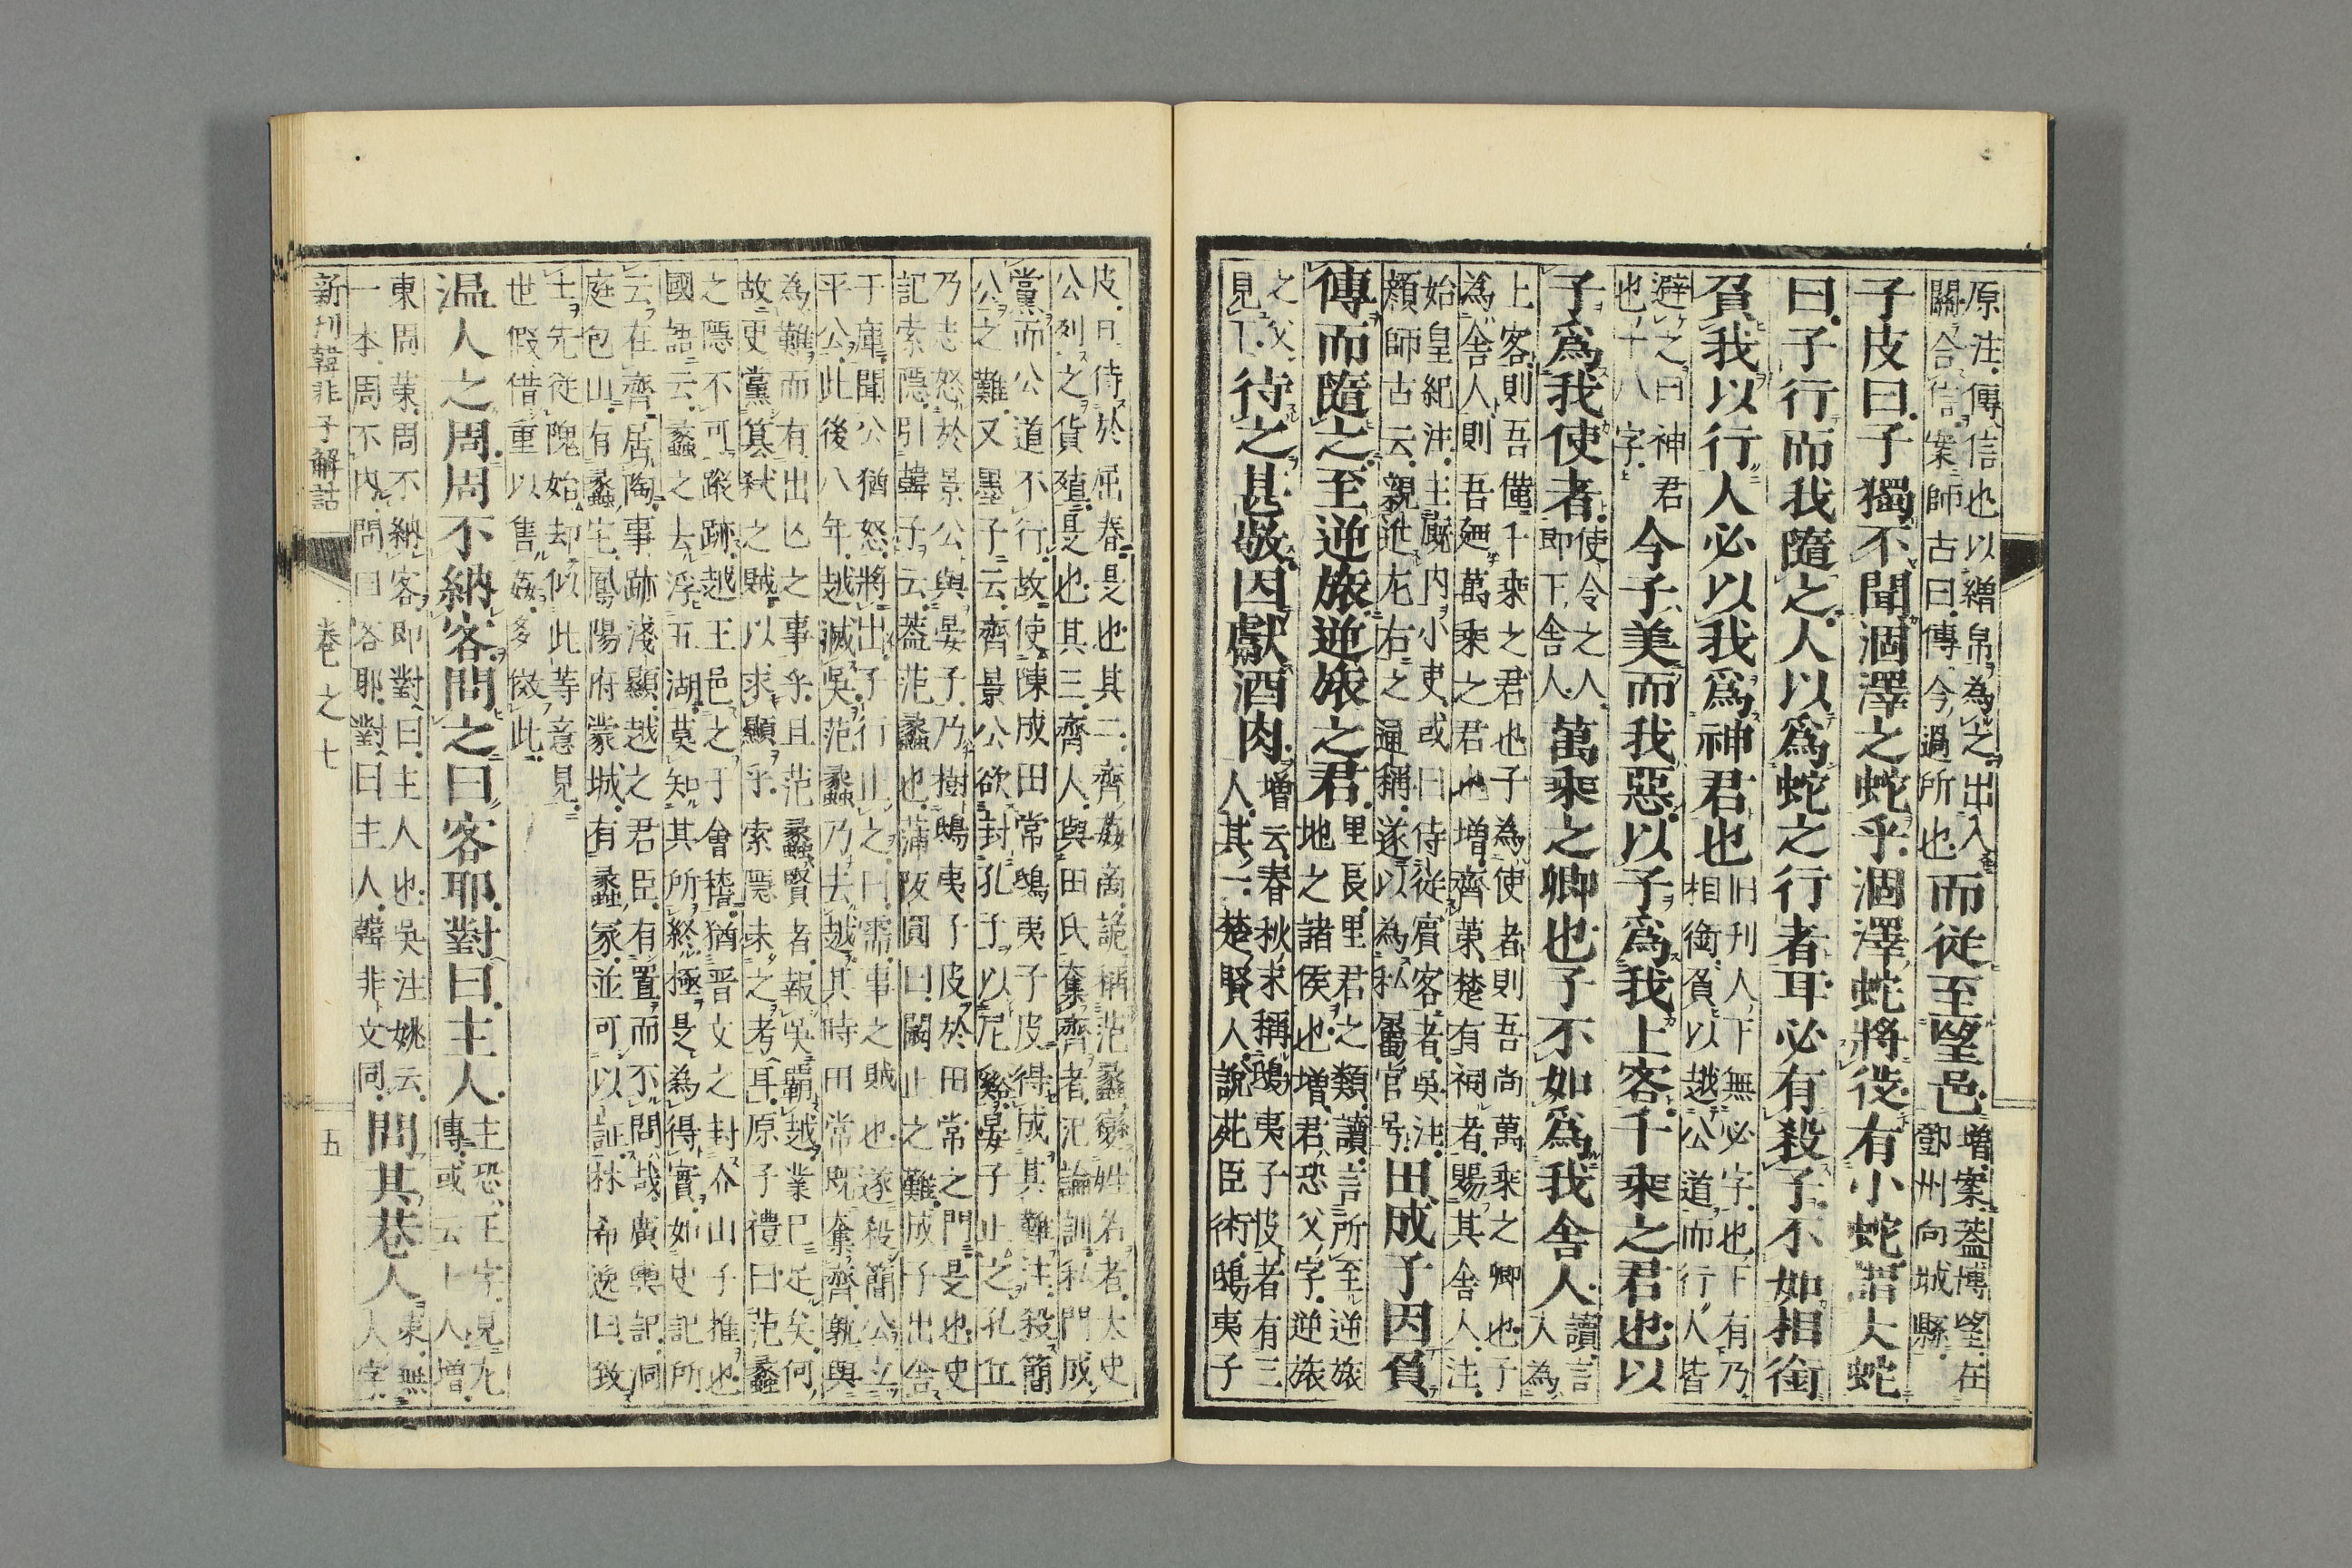 原注、傳信也以繒帛為之出入
關合信案師古曰傳今過所也而從至望邑增案蓋博望在
鄧州向城縣
子皮曰子獨不聞涸澤之蛇乎涸澤蛇將徙有小蛇謂大蛇
曰子行而我隨之人以爲蛇之行者耳必有殺子不如相銜
負我以行人必以我爲神君也旧刋人下無必字也下有乃
相銜負以越公道而行人皆
避之曰神君
也十八字今子美而我惡以子爲我上客千乘之君也以
子爲我使者使令之人
即下舍人萬乘之卿也子不如爲我舍人讀言
人為
上客則吾僅千乘之君也子為使者則吾尚萬乘之卿也子
為舍人則吾廼萬乘之君也增齊策楚有祠者賜其舍人注
始皇紀注主厩内小吏或曰侍從賓客者吳注
顏師古云親近左右之通稱遂以為私屬官号田成子因負
傳而隨之至逆旅逆旅之君里長里君之類讀言所至逆旅
地之諸侯也增君恐父字逆旅
之父
見下待之甚敬因獻酒肉增云春秋末稱鴟夷子皮者有三
人其一楚賢人說苑臣術鴟夷子
皮日侍於屈春是也其二齊姦商詭稱范蠡變姓名者太史
公列之貨殖是也其三齊人與田氏奪齊者氾論訓私門成
黨而公道不行故使陳成田常鴟夷子皮得成其難注殺簡
公之難又墨子云齊景公欲封孔子以尼谿晏子止之孔丘
乃志怒於景公與晏子乃樹鴟夷子皮於田常之門是也史
記索隱引韓子云蓋范蠡也蒲阪圓曰闞止之難成子出舍
于庫聞公猶怒將出子行止之曰需事之賊也遂殺簡公立
平公此後八年越滅吳范蠡乃去越其時田常既奪齊孰與
為難而有出亾之事乎且范蠡賢者報吳覇越業已足矣何
故更黨簒弑之賊以求顯乎索隱未之考耳原子禮曰范蠡
之隱不可蹤跡越王邑之于會稽猶晋文之封介山子推也
國語云蠡之去浮五湖莫知其所終極是為得實如史記所
云在齊居陶事跡淺顯越之君臣有置而不問哉廣輿記洞
庭包山有蠡宅鳳陽府蒙城有蠡冢並可以証林希逸曰致
士先從隗始却似此等意見
世假借重以售姦多倣此
温人之周周不納客問之曰客耶對曰主人主恐王字見左
傳或云上人增
東周策周不納客即對曰主人也吳注姚云
一本周不内問曰客耶對曰主人韓非文同問其巷人策無
人字
新刊韓非子解詁
卷之七
五